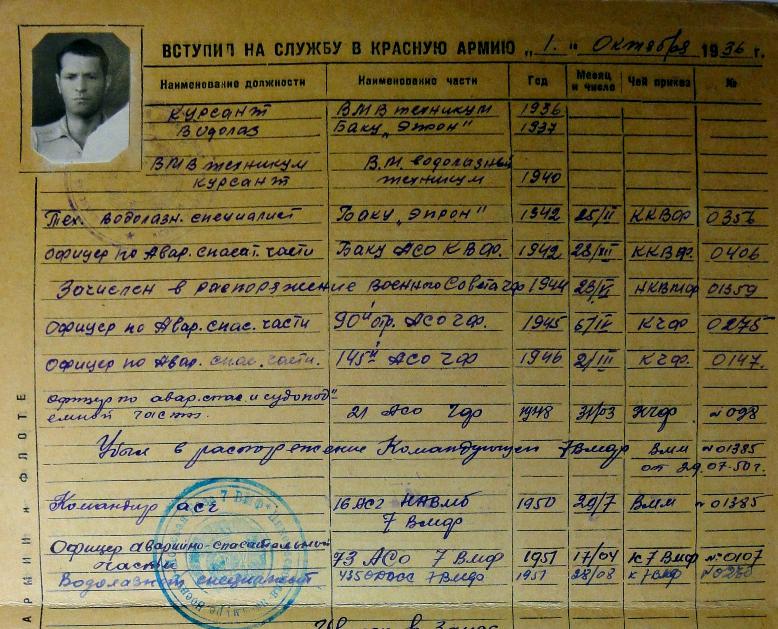 ВСТУПИЛ НА СЛУЖБУ В КРАСНУЮ АРМИЮ „1." Октября 1936 г.
Наименование должности Наименование части Год Месяц и число Чей приказ №
Курсант ВМВ техникум 1936
Водолаз Баку „Эпрон" 1937
ВМВ техникум В.М. водолазный
курсант техникум 1940
Тех. водолазн. специалист Баку „Эпрон" 1942 25/II ККВФ 0356
Офицер по Авар. спасат. части Баку АСО КВФ. 1942 28/XII ККВФ. 0406
Зачислен в распоряжение Военного Совета ЧФ 1944 НКВМФ 01359
Офицер по Авар. спас. части 90й отр. АСО ЧФ. 1945 6/IV КЧФ 0275
Офицер по Авар. спас. части. 145й АСО ЧФ 1946 2/III КЧФ. 0147.
офицер по авар. спас. и судопод"
емной части. 21 АСО ЧФ 1948 31/03 КЧФ №098
Убыл в распоряжение Командующего 7 ВМФ ВММ №01385
от 29.07.50 г.
Командир асч 16 АСЧ 1950 29/7 ВММ №01385
7 ВМФ
Офицер аварийно-спасательной
части 73 АСО 7 ВМФ 1951 17/04 К 7 ВМФ №0107
Водолазный специалист 7 ВМФ 1951 28/08 К 7 ВМФ
в Запас
АРМИИ и ФЛОТЕ